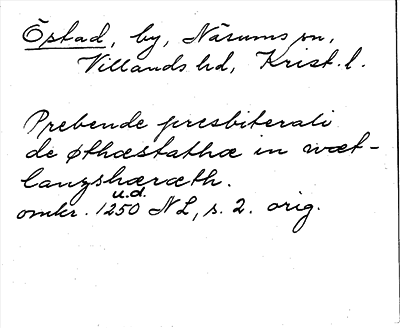 Östad, by, Näsums sn,
Villands hd, Krist. l.
Prebende presbiterali
de øthæstathæ in wæt-
langzhæræth.
u.d.
omkr. 1250 NL, s. 2. orig.